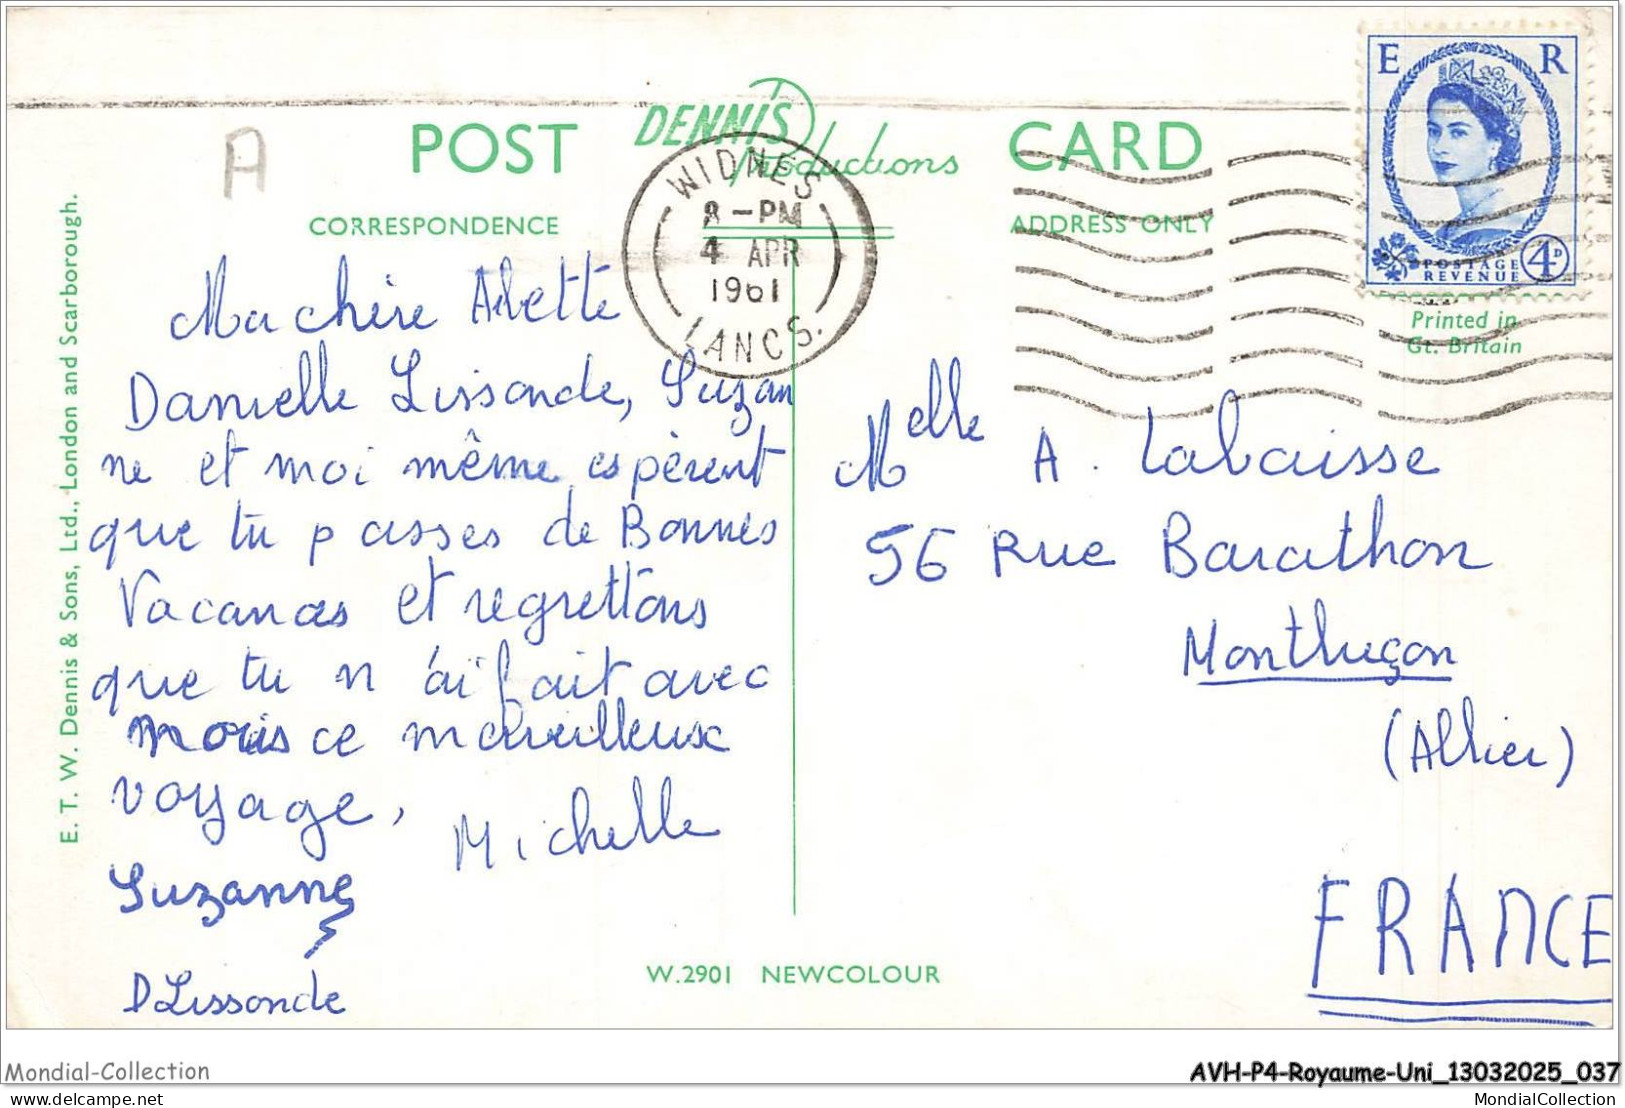 E R
POSTAGE
REVENUE
4D
Printed in
Gt. Britain
DENNIS
Productions
POST CARD
CORRESPONDENCE
ADDRESS ONLY
WIDNES
8-PM
4 APR
1961
LANCS.
A
E. T. W. Dennis & Sons, Ltd., London and Scarborough.
Ma chère Arlette
Danielle Lissonde, Suzan
ne et moi même espèrent
que tu passes de Bonnes
Vacances et regrettons
que tu n'ai fait avec
nous ce merveilleux
voyage,
Michelle
Suzanne
D Lissonde
Melle A. Labaisse
56 Rue Barathon
Montluçon
(Allier)
FRANCE
W.2901 NEWCOLOUR
Mondial-Collection
AVH-P4-Royaume-Uni_13032025_037
delcampe.net
MondialCollection